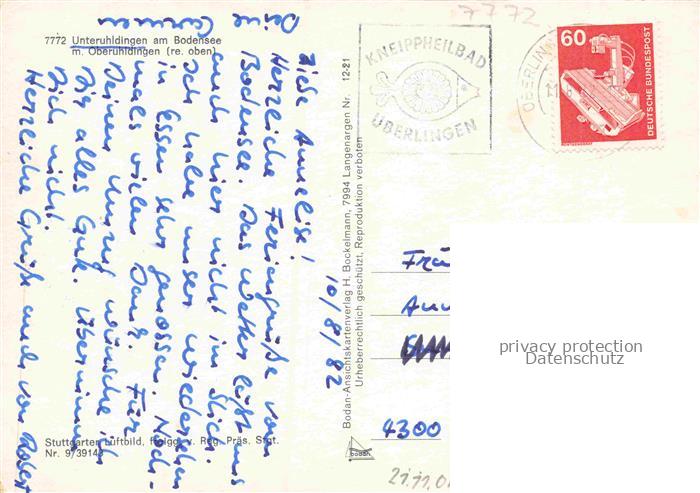 7772 Unteruhldingen am Bodensee
m. Oberuhldingen (re. oben)
10/8/82
Liebe Annelise!
Herzliche Feriengrüße vom
Bodensee. Das Wetter läßt uns
auch hier nicht im Stich.
Ich habe unser Wiedersehen
in Essen sehr genossen. Noch-
mals vielen Dank. Für
Deinen Umzug wünsche ich
Dir alles Gute. Übernimm
Dich nicht!
Herzliche Grüße auch von Robert
Deine
Stuttgarter Luftbild, Freigg. v. Reg. Präs. Stgt.
Nr. 9/39143
Bodan-Ansichtskartenverlag H. Bockelmann, 7994 Langenargen Nr. 12-21
Urheberrechtlich geschützt, Reproduktion verboten
bodan
7772
KNEIPPHEILBAD
ÜBERLINGEN
60
DEUTSCHE BUNDESPOST
4300
privacy protection
Datenschutz